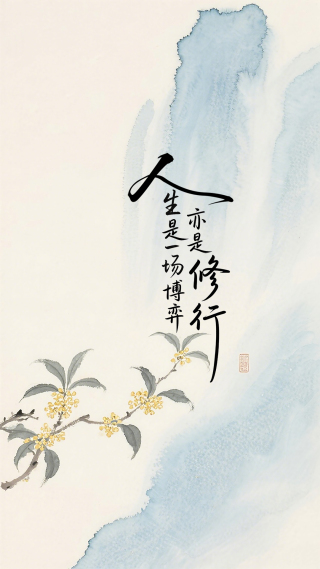 人生是一场博弈
亦是修行